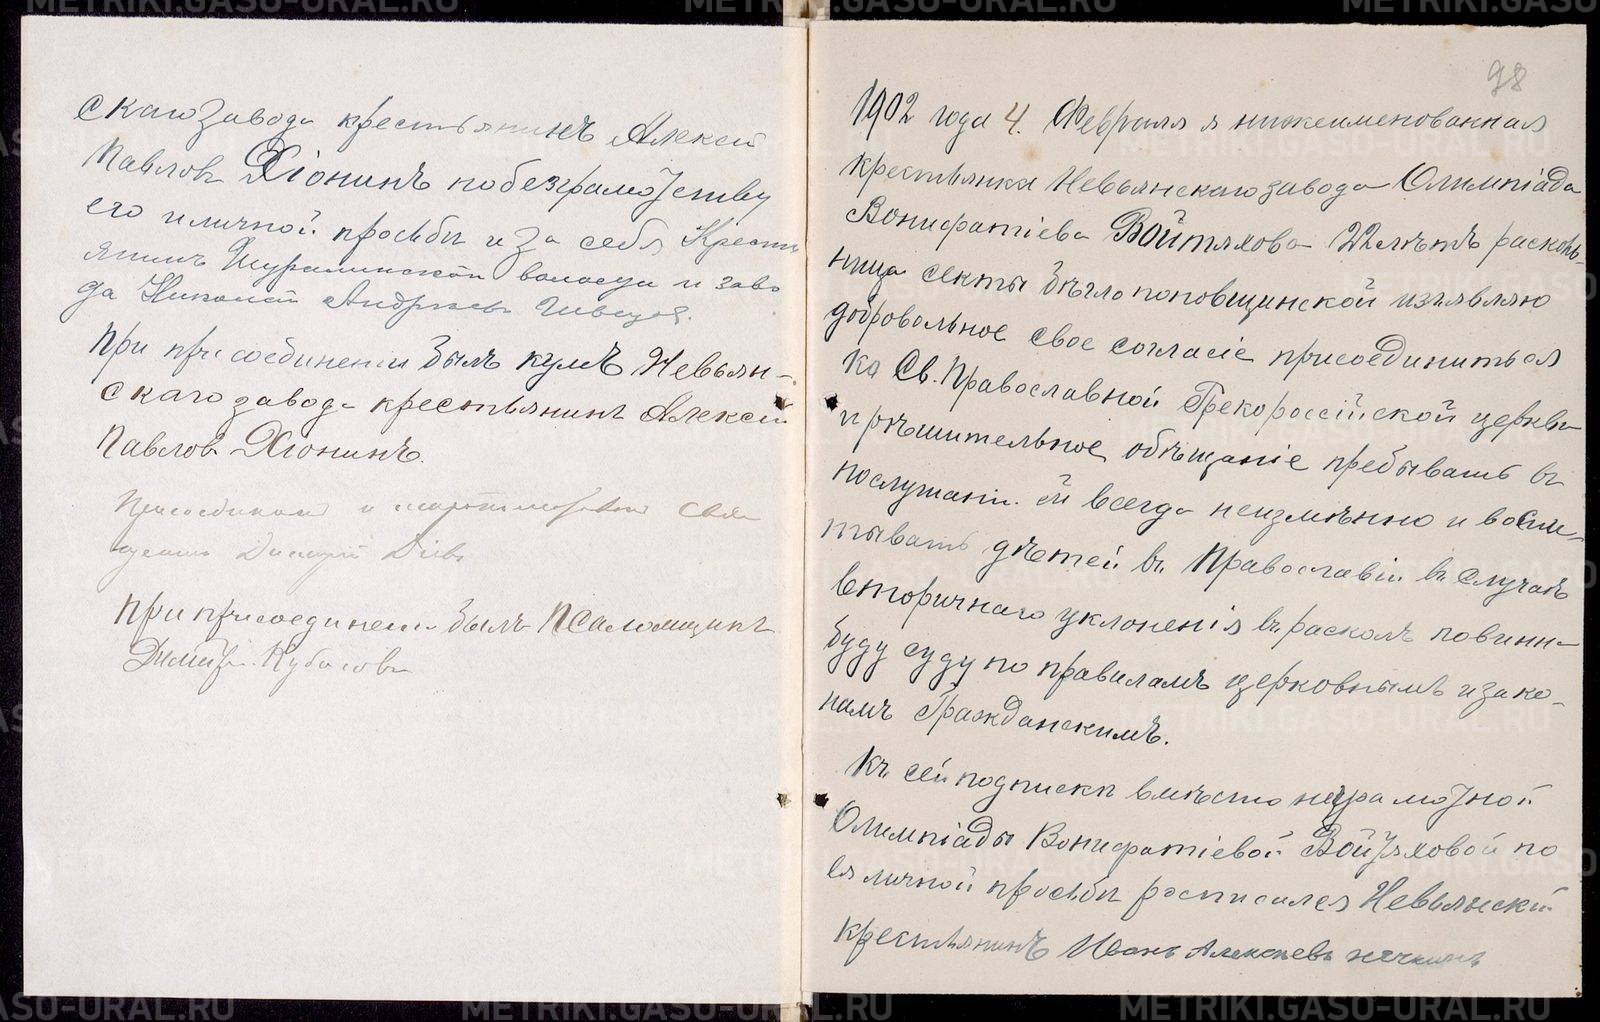 скаго завода крестьянинъ Алексѣй
Павловъ Хіонинъ по безграмотству
его и личной просьбы и за себя Крестья
янинъ Шуралинской волости и заво
да Николай Андреевъ Швецов.
При присоединеніи былъ кумъ Невьян-
скаго завода крестьянинъ Алексѣй
Павловъ Хіонинъ.
Присоединялъ и Свя
щенникъ Дмитрій Діевъ
При присоединеніи былъ Псаломщикъ
Димитр. Кубасовъ
98
1902 года 4. Февраля я нижеименованная
крестьянка Невьянскаго завода Олимпіада
Вонифатіева Войтяхова 22 лѣтъ расколь-
ница секты бѣглопоповщинской изъявляю
добровольное свое согласіе присоединиться
ко Св. Православной Грекороссійской церкви
и рѣшительное обѣщаніе пребывать въ
послушаніи ей всегда неизмѣнно и воспи-
тывать дѣтей въ Православіи въ случаѣ
вторичнаго уклоненія въ расколъ повинна
буду суду по правиламъ церковнымъ и зако-
намъ Гражданскимъ.
Къ сей подписки вмѣсто неграмотной
Олимпіады Вонифатіевой Войтяховой по
ея личной просьбы росписался Невьянскій
крестьянинъ Иванъ Алексѣевъ